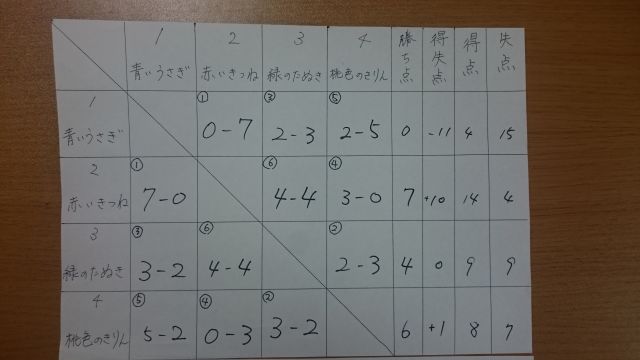 1 2 3 4 勝ち点 得失点 得点 失点
青いうさぎ 赤いきつね 緑のたぬき 桃色のきりん
1 ① ③ ⑤
青いうさぎ 0-7 2-3 2-5 0 -11 4 15
2 ① ⑥ ④
赤いきつね 7-0 4-4 3-0 7 +10 14 4
3 ③ ⑥ ②
緑のたぬき 3-2 4-4 2-3 4 0 9 9
4 ⑤ ④ ②
桃色のきりん 5-2 0-3 3-2 6 +1 8 7